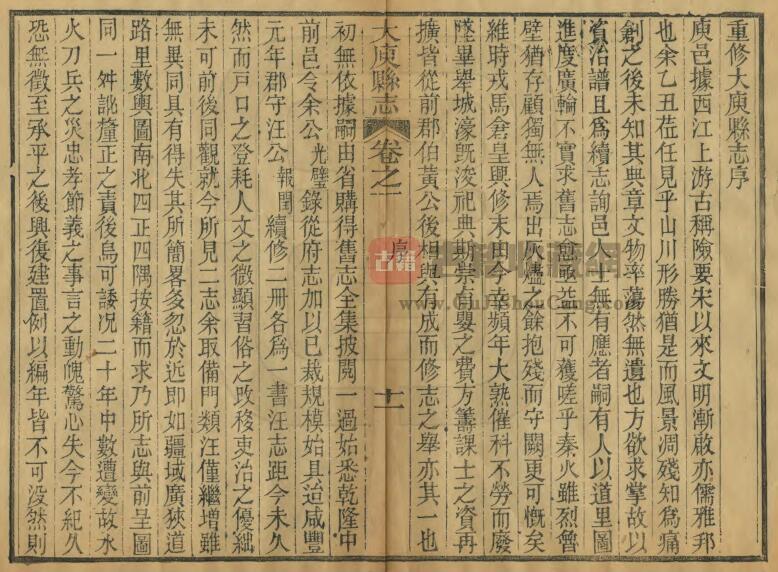 重修大庾縣志序
庾邑據西江上游古稱險要宋以來文明漸啟亦儒雅邦
也余乙丑莅任見乎山川形勝猶是而風景凋殘知為痛
創之後未知其典章文物率蕩然無遺也方欲求掌故以
資治譜且為續志詢邑人士無有應者嗣有人以道里圖
進度廣輪不實求舊志愈亟並不可獲嗟乎秦火雖烈魯
壁猶存顧獨無人焉出灰燼之餘抱殘而守闕更可慨矣
維時戎馬倉皇興修未由今幸頻年大熟催科不勞而廢
墜畢舉城濠既浚祀典斯崇育嬰之費方籌課士之資再
擴皆從前郡伯黃公後相與有成而修志之舉亦其一也
大庾縣志 卷之一 序 十一
初無依據嗣由省購得舊志全集披閱一過始悉乾隆中
前邑令余公光璧錄從府志加以已裁規模始具迨咸豐
元年郡守汪公報閏續修二冊各為一書汪志距今未久
然而戶口之登耗人文之微顯習俗之改移吏治之優絀
未可前後同觀就今所見二志余取備門類汪僅繼增雖
無異同具有得失其所簡畧多忽於近即如疆域廣狹道
路里數輿圖南北四正四隅按籍而求乃所志與前呈圖
同一舛訛釐正之責後烏可諉况二十年中數遭變故水
火刀兵之災忠孝節義之事言之動魄驚心失今不紀久
恐無徵至承平之後興復建置例以編年皆不可沒然則
www.GuJiShouCang.com
古籍